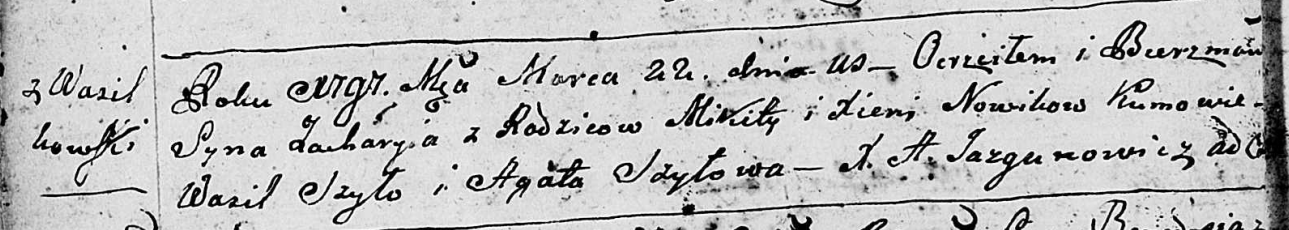 z Wasil
kowski
Roku 1797. Mca Marca 22. dnia us— Ochrzciłem i Bierzmow
Syna Zacharyja z Rodzicow Mikity i Xieni Nowikow Kumowie—
Wasil Szyło i Agata Szyłowa— X. A. Jazgunowicz